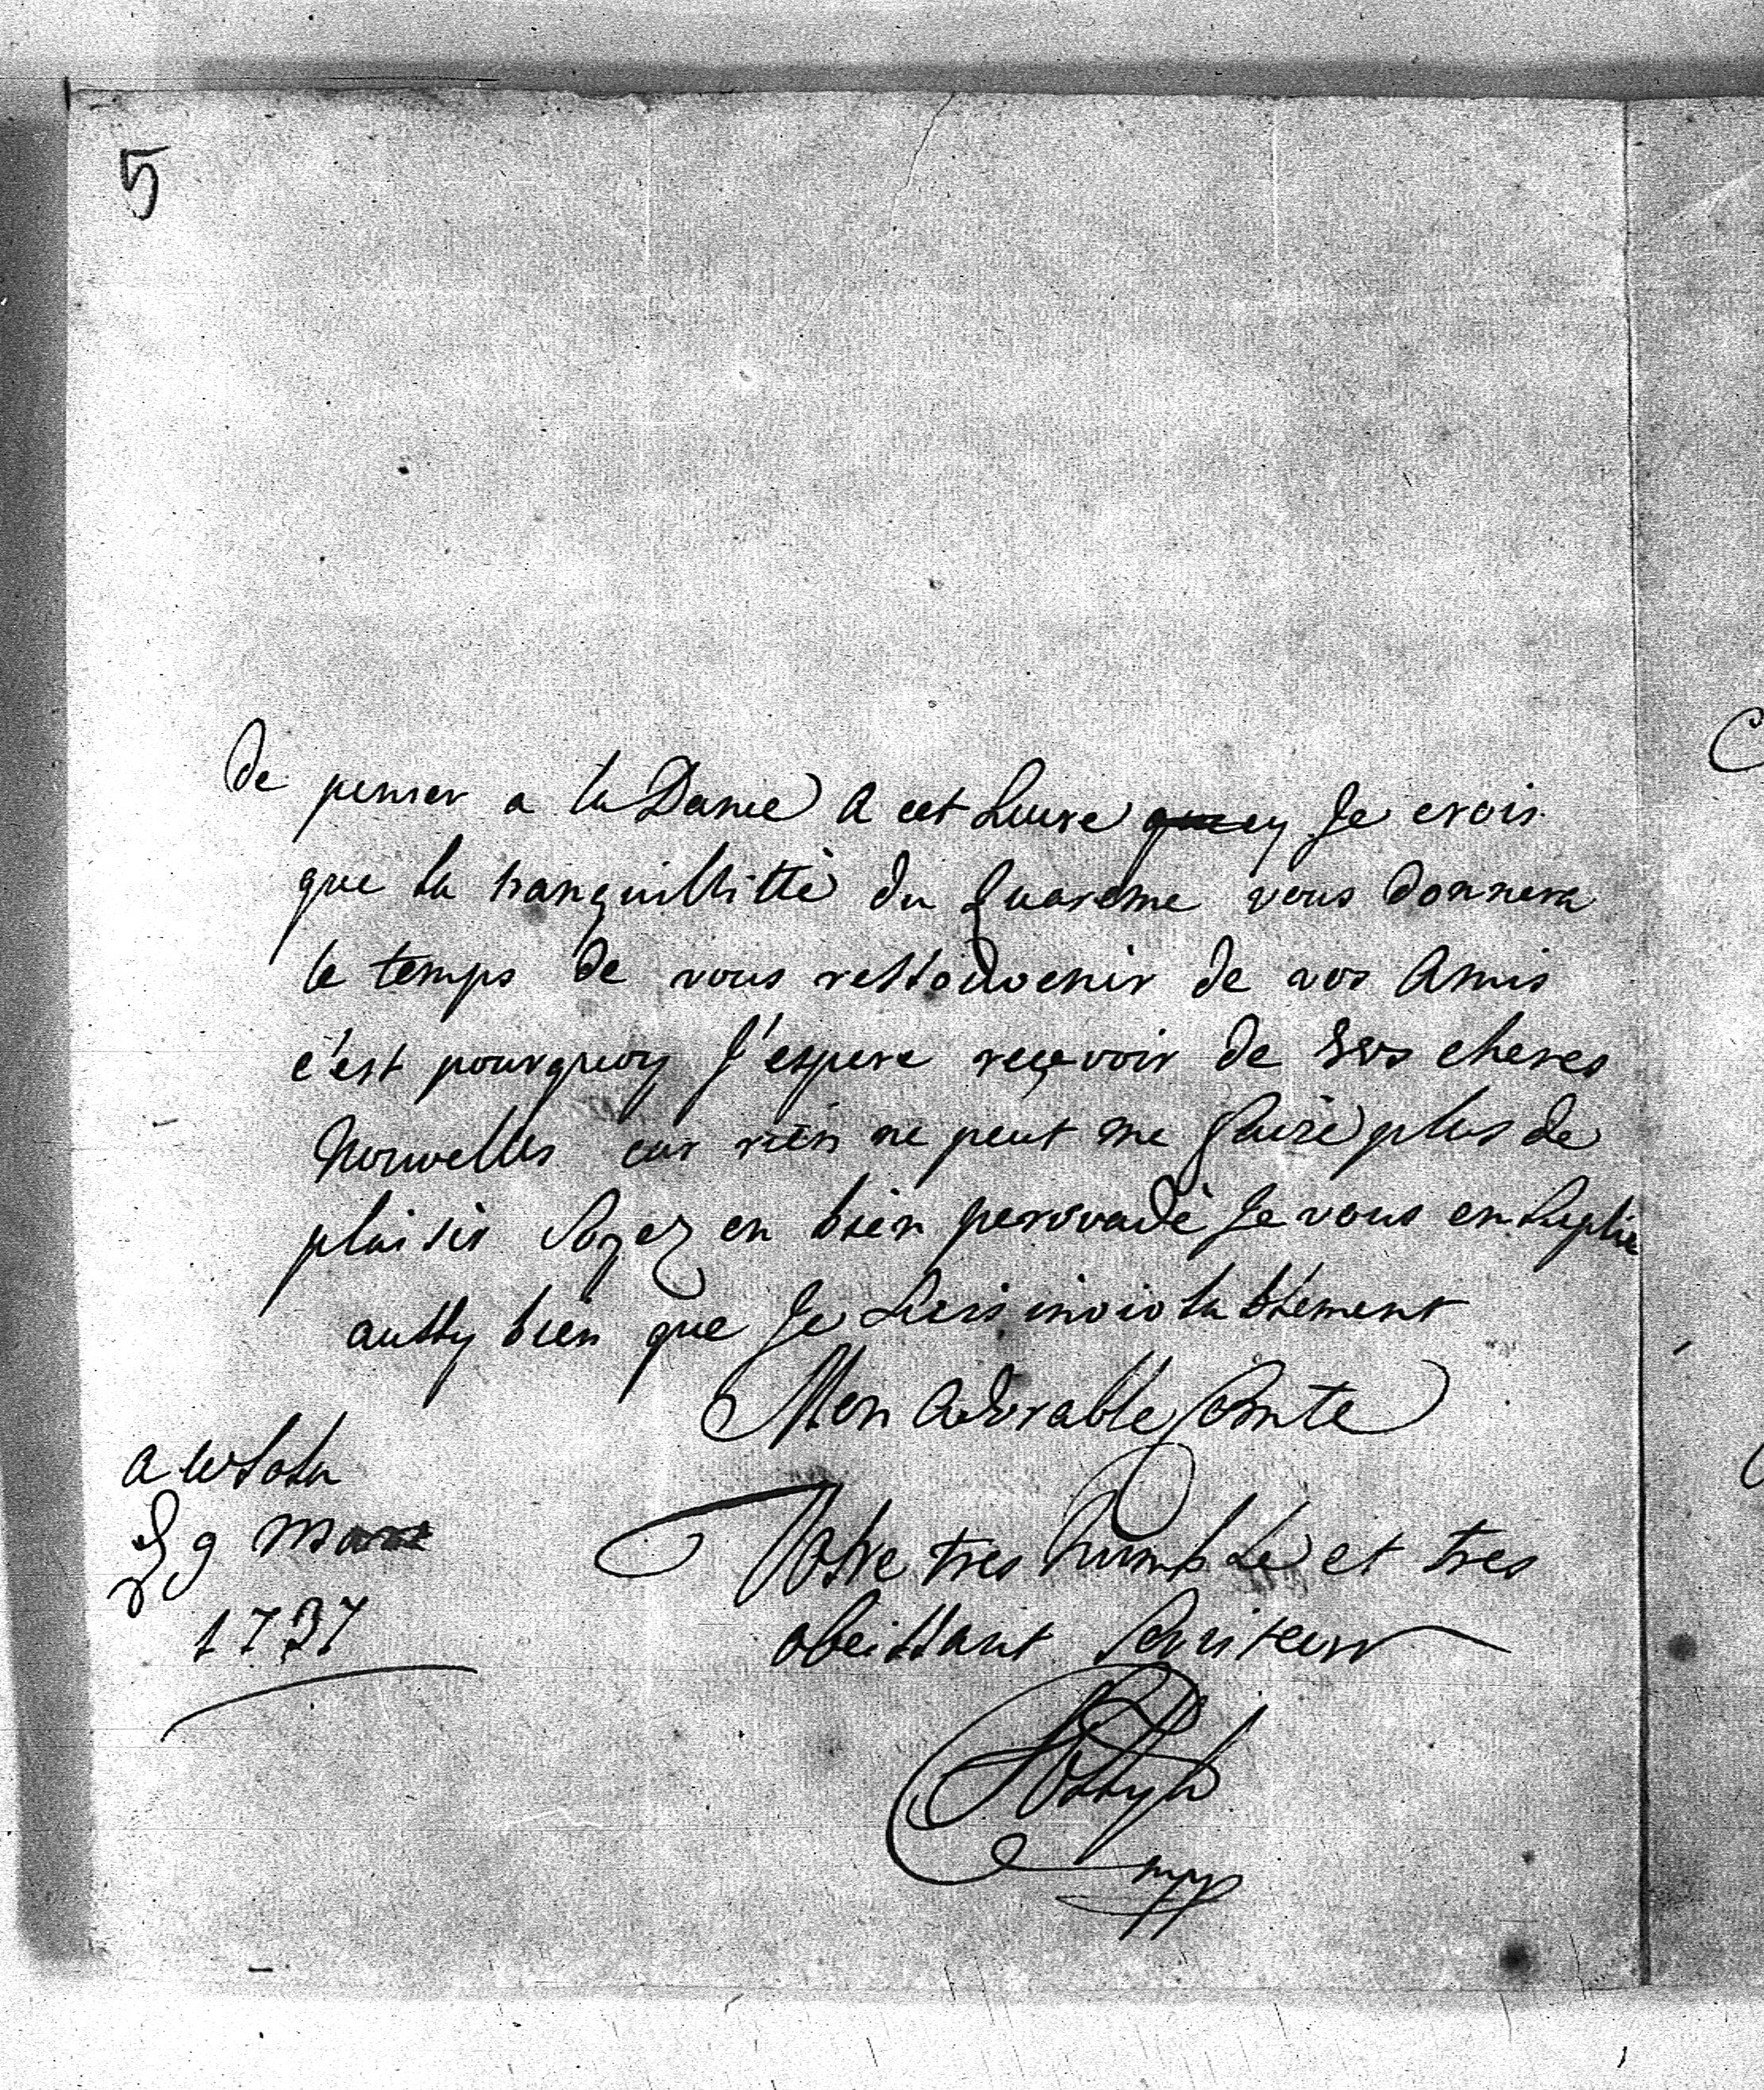 5
de penser a la Dance A cet heure quoy Je crois
que la tranquillitté du quareme vous donnera
le temps de vous ressouvenir de vos Amis
c'est pourquoy J'espere reçevoir de vos cheres
Nouvelles car rien ne peut me faire plus de
plaisir Soyez en bien persuadé Je vous en suplie
aussy bien que Je suis inviolablement
Mon Adorable Comte
Votre tres humble et tres
obeissant Serviteur
mpp
a
9 Mars
1737